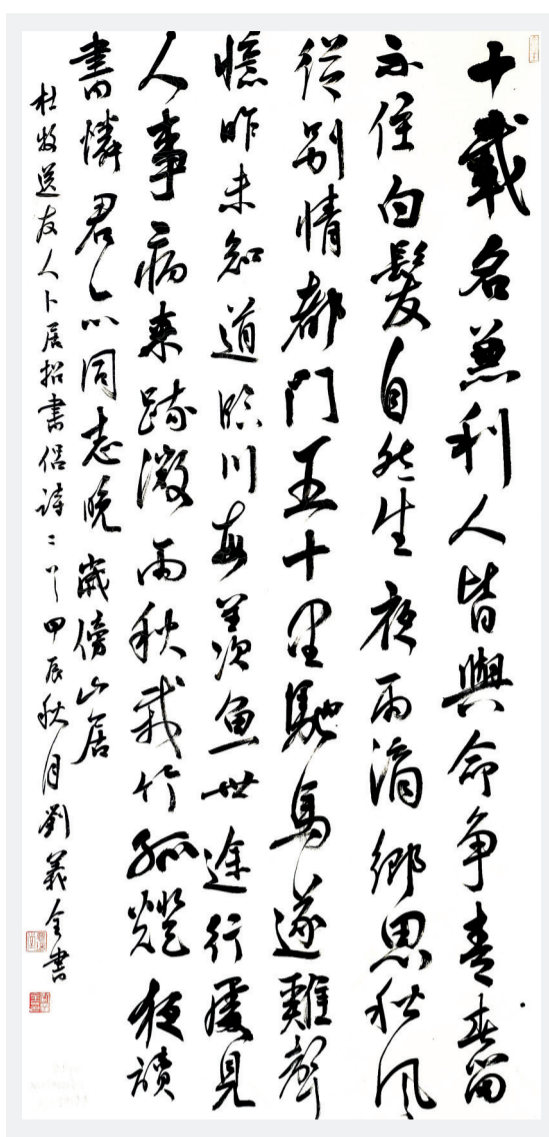 十載名兼利人皆與命争青春留
不住白髮自然生夜雨滴鄉思秋風
從别情都門五十里馳馬逐雞聲
憶昨未知道臨川每羡魚世途行處見
人事病來疎微雨秋栽竹孤燈夜讀
書憐君亦同志晚歲傍山居
杜牧送友人卜居招書侶詩二首甲辰秋月劉義全書